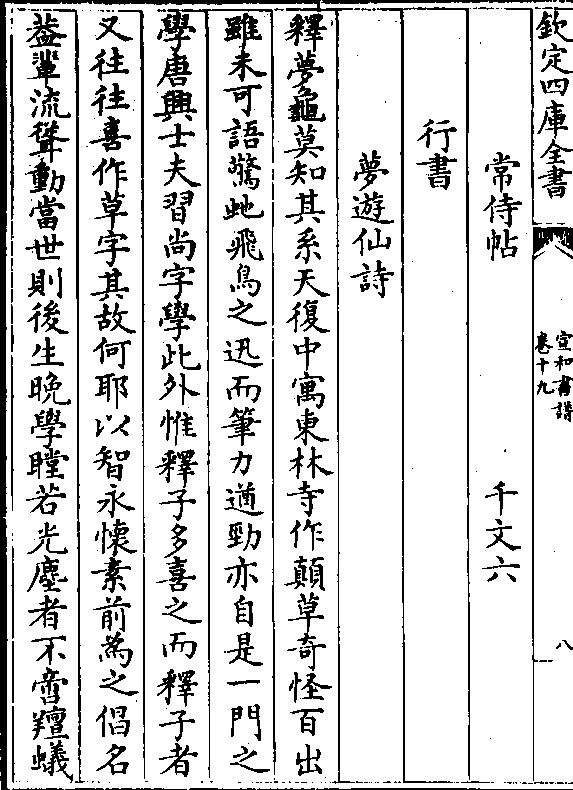 欽定四庫全書
宣和書譜
卷十九
八
常侍帖
千文六
行書
夢遊仙詩
釋夢龜莫知其系天復中寓東林寺作顛草奇怪百出
雖未可語驚虵飛鳥之迅而筆力遒勁亦自是一門之
學唐興士夫習尚字學此外惟釋子多喜之而釋子者
又往往喜作草字其故何耶以智永懷素前為之倡名
葢輩流聳動當世則後生晚學瞠若光塵者不啻羶蟻